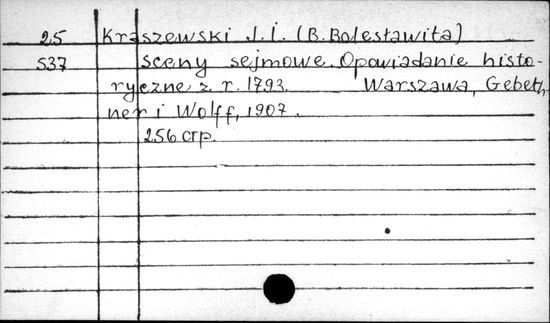 25 Kraszewski J. I. (B. Bolesławita)
537 Sceny sejmowe. Opowiadanie histo-
ryczne z r. 1793. Warszawa, Gebeth-
ner i Wolff, 1907.
256 стр.